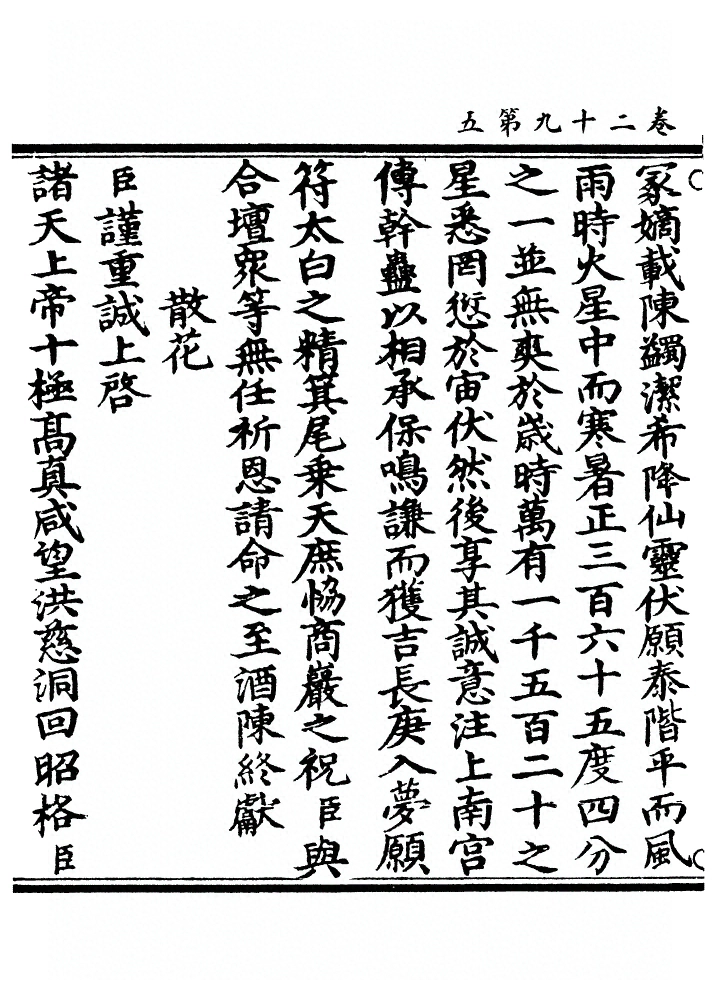 卷二十九第五
冢嫡載陳蠲潔希降仙靈伏願泰階平而風
雨時火星中而寒暑正三百六十五度四分
之一並無爽於歲時萬有一千五百二十之
星悉罔愆於宙伏然後享其誠意注上南宮
傳幹蠱以相承保鳴謙而獲吉長庚入夢願
符太白之精箕尾乗天庶恊商巖之祝臣與
合壇衆等無任祈恩請命之至酒陳終獻
散花
臣謹重誠上啓
諸天上帝十極髙真咸望洪慈洞回昭格臣